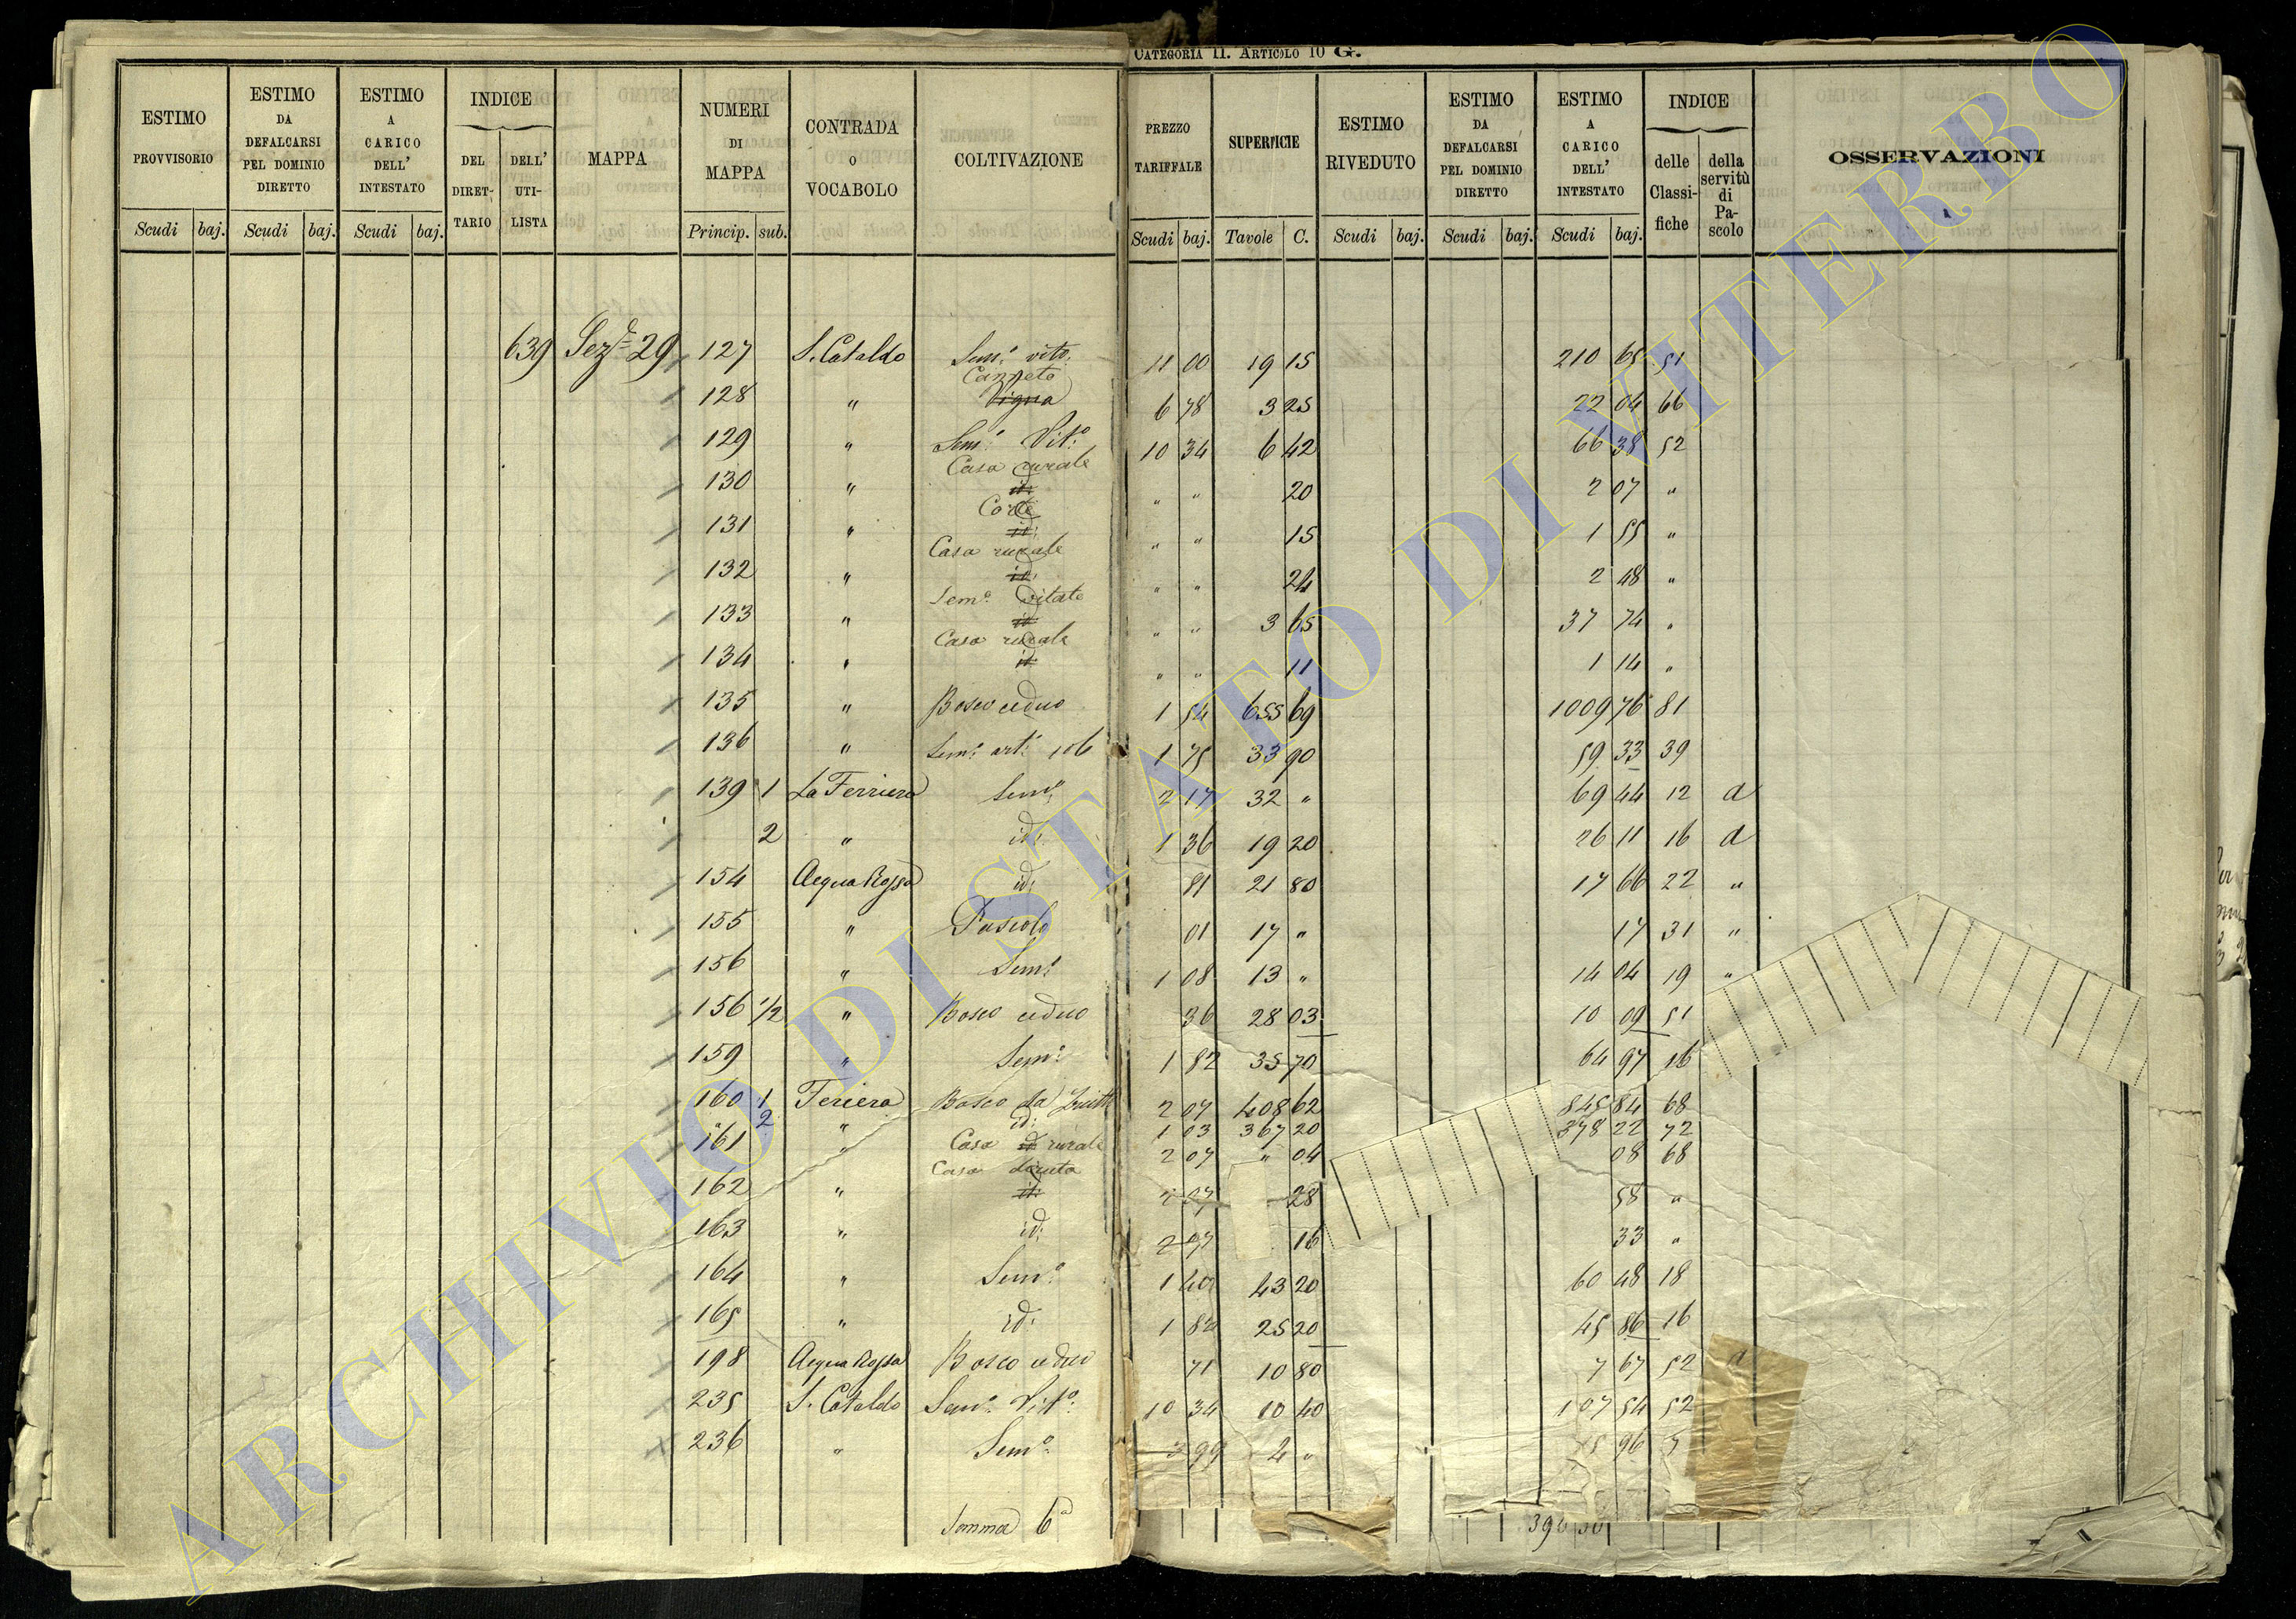 CATEGORIA II. ARTICOLO 10 G.
ESTIMO PROVVISORIO Scudi baj.
ESTIMO DA DEFALCARSI PEL DOMINIO DIRETTO Scudi baj.
ESTIMO A CARICO DELL' INTESTATO Scudi baj.
INDICE DEL DIRET-TARIO DELL' UTI-LISTA
MAPPA
NUMERI DI MAPPA Princip. sub.
CONTRADA O VOCABOLO
COLTIVAZIONE
PREZZO TARIFFALE Scudi baj.
SUPERFICIE Tavole C.
ESTIMO RIVEDUTO Scudi baj.
ESTIMO DA DEFALCARSI PEL DOMINIO DIRETTO Scudi baj.
ESTIMO A CARICO DELL' INTESTATO Scudi baj.
INDICE delle Classi-fiche della servitù di Pa-scolo
OSSERVAZIONI
639 Sez.e 29 127 S. Cataldo Sem.o vito. 11 00 19 15 210 65 51
128 " Canneto Vigna 6 78 3 25 22 04 66
129 " Sem.o Vit.o 10 34 6 42 66 38 52
130 " Casa rurale id. " " 20 2 07 "
131 " Corte id. " " 15 1 55 "
132 " Casa rurale id. " " 24 2 48 "
133 " Sem.o Vitato id. " " 3 65 37 74 "
134 " Casa rurale id. " " 11 1 14 "
135 " Bosco ceduo 1 54 655 69 1009 76 81
136 " Sem.o art.o 1 75 33 90 59 33 39
139 1 La Ferriera Sem.o 2 17 32 " 69 44 12 a
2 " id. 1 36 19 20 26 11 16 a
154 Acqua Rossa id. 81 21 80 17 66 22 "
155 " Pascolo 01 17 " 17 31 "
156 " Sem.o 1 08 13 " 14 04 19 "
156 1/2 " Bosco ceduo 36 28 03 10 09 51
159 " Sem.o 1 82 35 70 64 97 16
160 1 Feriera Bosco da 2 07 408 62 845 84 68
2 " id. 1 03 367 20 378 22 72
161 " Casa id. rurale 2 07 " 04 08 68
162 " Casa diruta id. 2 07 28 58 "
163 " id. 2 07 16 33 "
164 " Sem.o 1 40 43 20 60 48 18
165 " id. 1 82 25 20 45 86 16
198 Acqua Rossa Bosco ceduo 71 10 80 7 67 52 a
235 S. Cataldo Sem.o Vit.o 10 34 10 40 107 54 52
236 " Sem.o 99 4 " 96
Somma 6a
ARCHIVIO DI STATO DI VITERBO